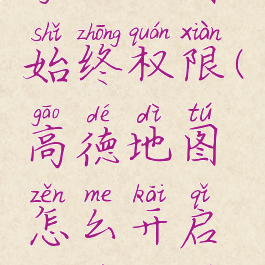 shǐ zhōng quán xiàn
始终权限(
gāo dé dì tú
高德地图
zěn me kāi qǐ
怎么开启